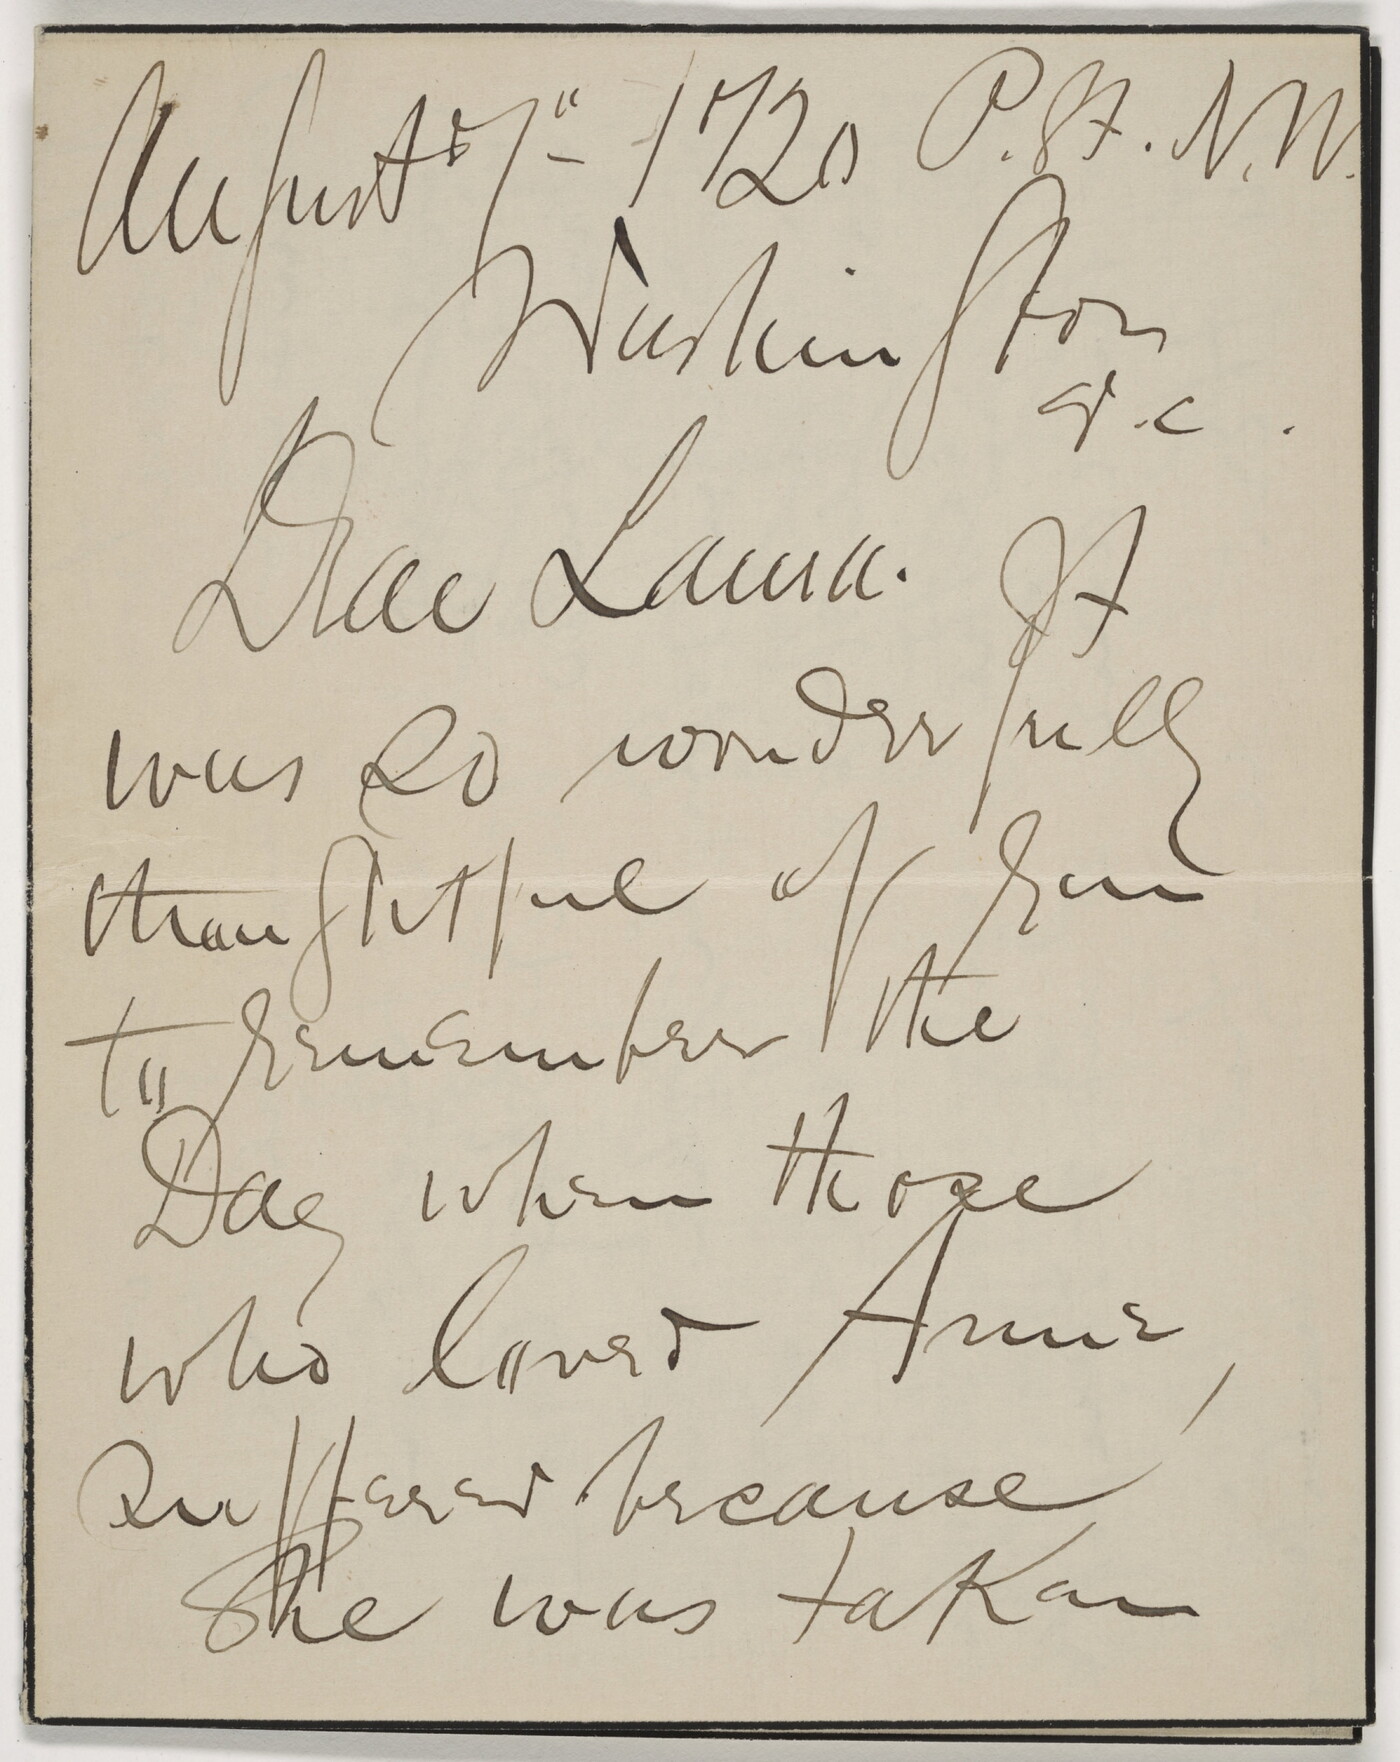 August 7" - 1720 P. St. N.W.
Washington
D.C.
Dear Laura. It
was so wonderfully
thoughtful of you
to remember the
Day when those
who loved Annie,
suffered because
She was taken